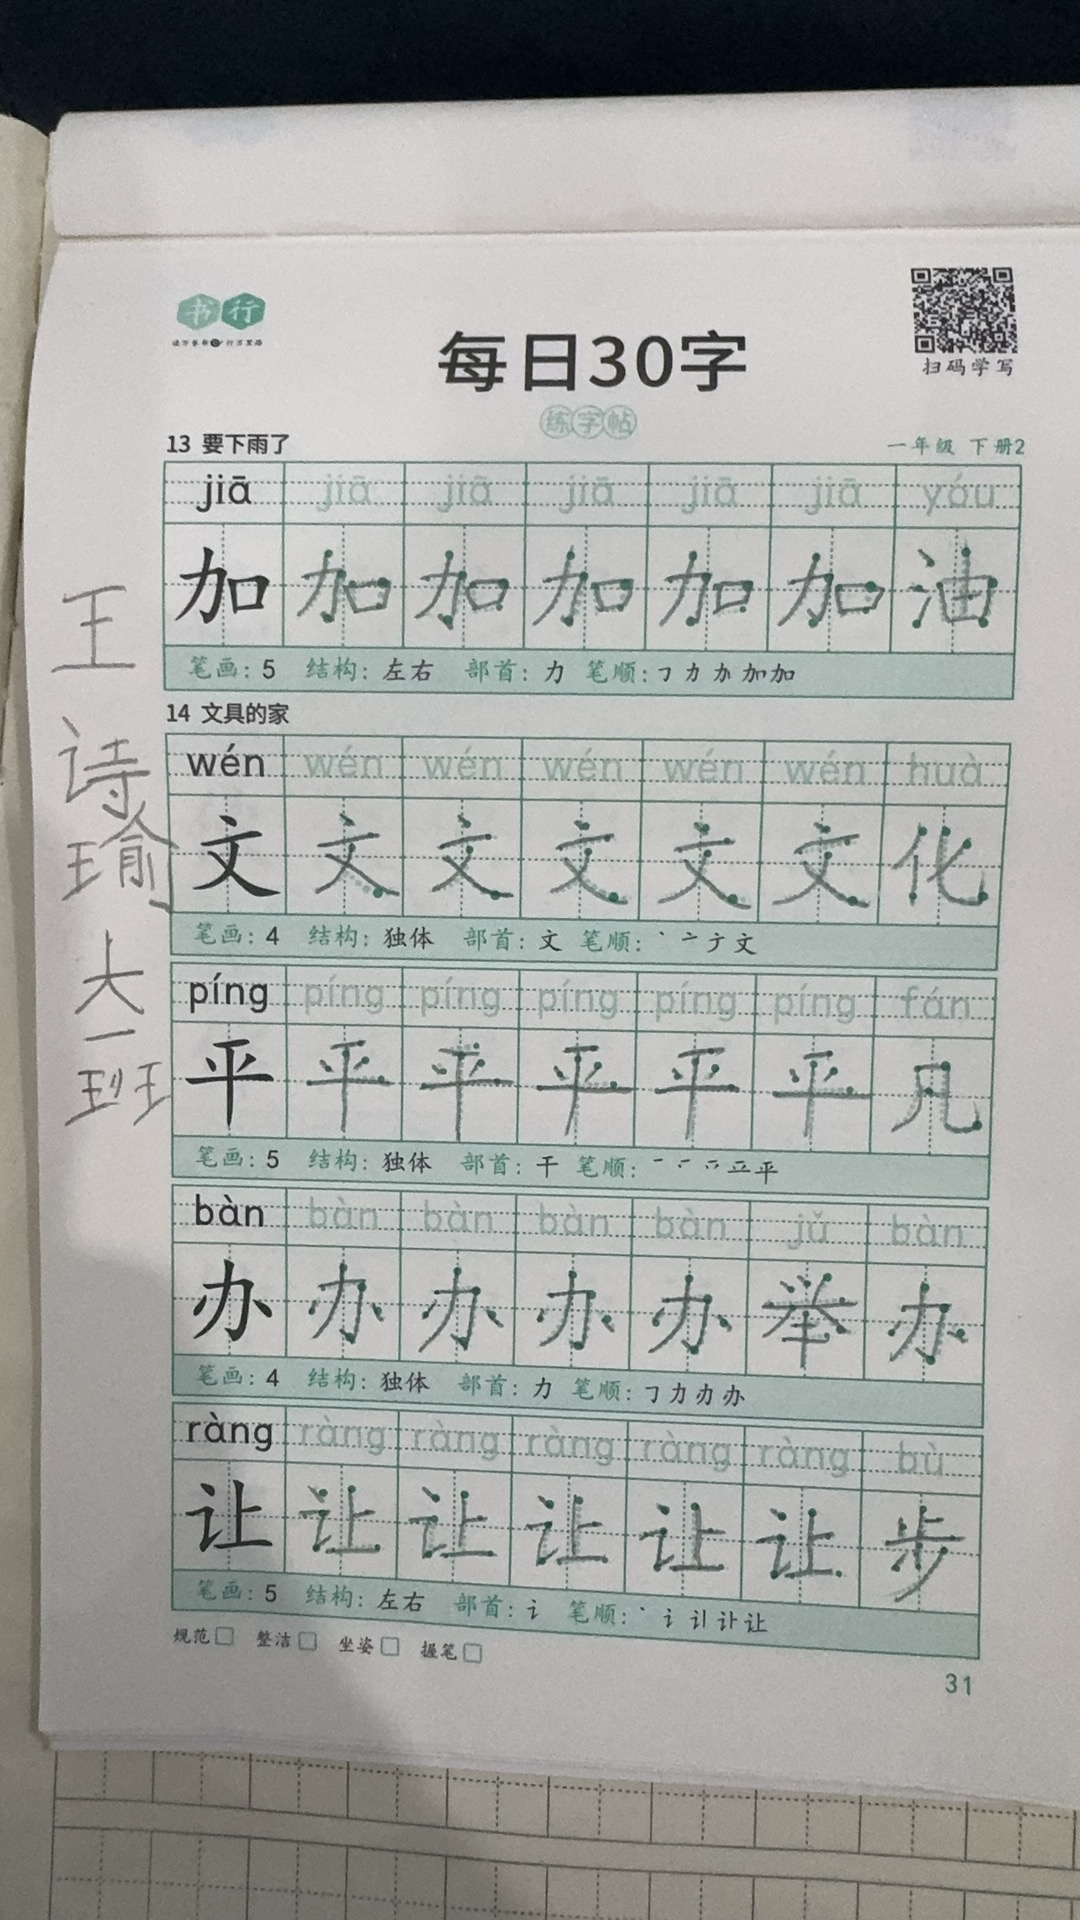 书行
读万卷书 行万里路
扫码学写
每日30字
练字帖
13 要下雨了 一年级 下册2
jiā jiā jiā jiā jiā jiā yóu
加 加 加 加 加 加 油
笔画：5 结构：左右 部首：力 笔顺：㇆力加加加
14 文具的家
wén wén wén wén wén wén huà
文 文 文 文 文 文 化
笔画：4 结构：独体 部首：文 笔顺：丶亠ナ文
píng píng píng píng píng píng fán
平 平 平 平 平 平 凡
笔画：5 结构：独体 部首：干 笔顺：一 平
bàn bàn bàn bàn bàn jǔ bàn
办 办 办 办 办 举 办
笔画：4 结构：独体 部首：力 笔顺：㇆力办办
ràng ràng ràng ràng ràng ràng bù
让 让 让 让 让 让 步
笔画：5 结构：左右 部首：讠 笔顺：丶讠让
规范□ 整洁□ 坐姿□ 握笔□
31
王
诗
瑜
大
一
班